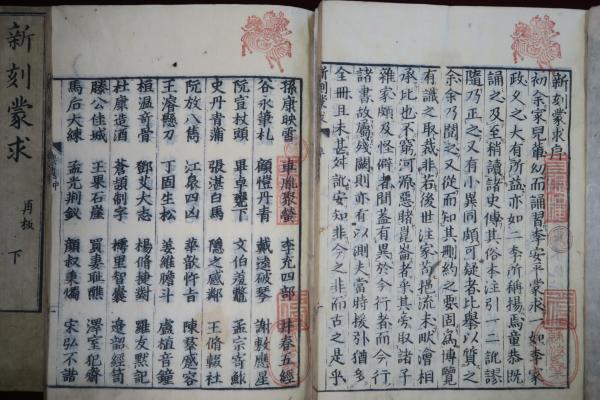 新刻蒙求序
初余家兒輩幼而誦習李安平蒙求 如李家
政爻之大有所益亦如二李所稱揚焉童恭既
誦之及至稍讀諸史傳其俗本注引一二訛謬
隨乃正之又有小異同頗可疑者比擧以質之
余余乃閲之又從而知其刪約之要固爲博覽
有識之取裁非若後世注家苟挹流末畎澮相
承比也不窮河源惡睹崑崙者乎其旁取諸子
雜家頗及怪僻者間蓋有異於今行者而今行
諸書故屬殘闕則亦有以測夫當時援引猶多
全冊且未甚舛訛安知非今之非而古之是乎
新刻蒙求
孫康映雪 車胤聚螢 李充四部 井春五經
谷永筆札 顧愷丹青 戴逵破琴 謝敷應星
阮宣杖頭 畢卓甕下 文伯羞鼈 孟宗寄鮓
史丹青蒲 張湛白馬 隱之感鄰 王脩輟社
阮放八雋 江泉四凶 華歆忤旨 陳羣蹙容
王濬懸刀 丁固生松 姜維膽斗 盧植音鐘
桓溫奇骨 鄧艾大志 楊脩捷對 羅友默記
杜康造酒 蒼頡制字 樗里智囊 邊韶經笥
滕公佳城 王果石崖 買妻恥樵 澤室犯齋
馬后大練 孟光荊釵 顏叔秉燭 宋弘不諧
新刻蒙求
再板
下